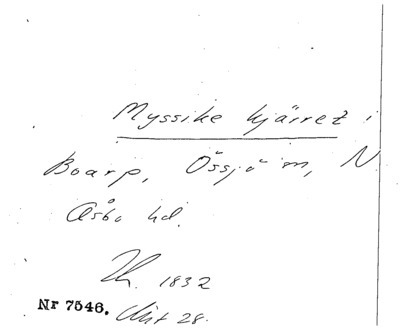 Myssike kjärret i
Boarp, Össjö m, N
Åsbo hd.
1832
Nr 7546. 28.